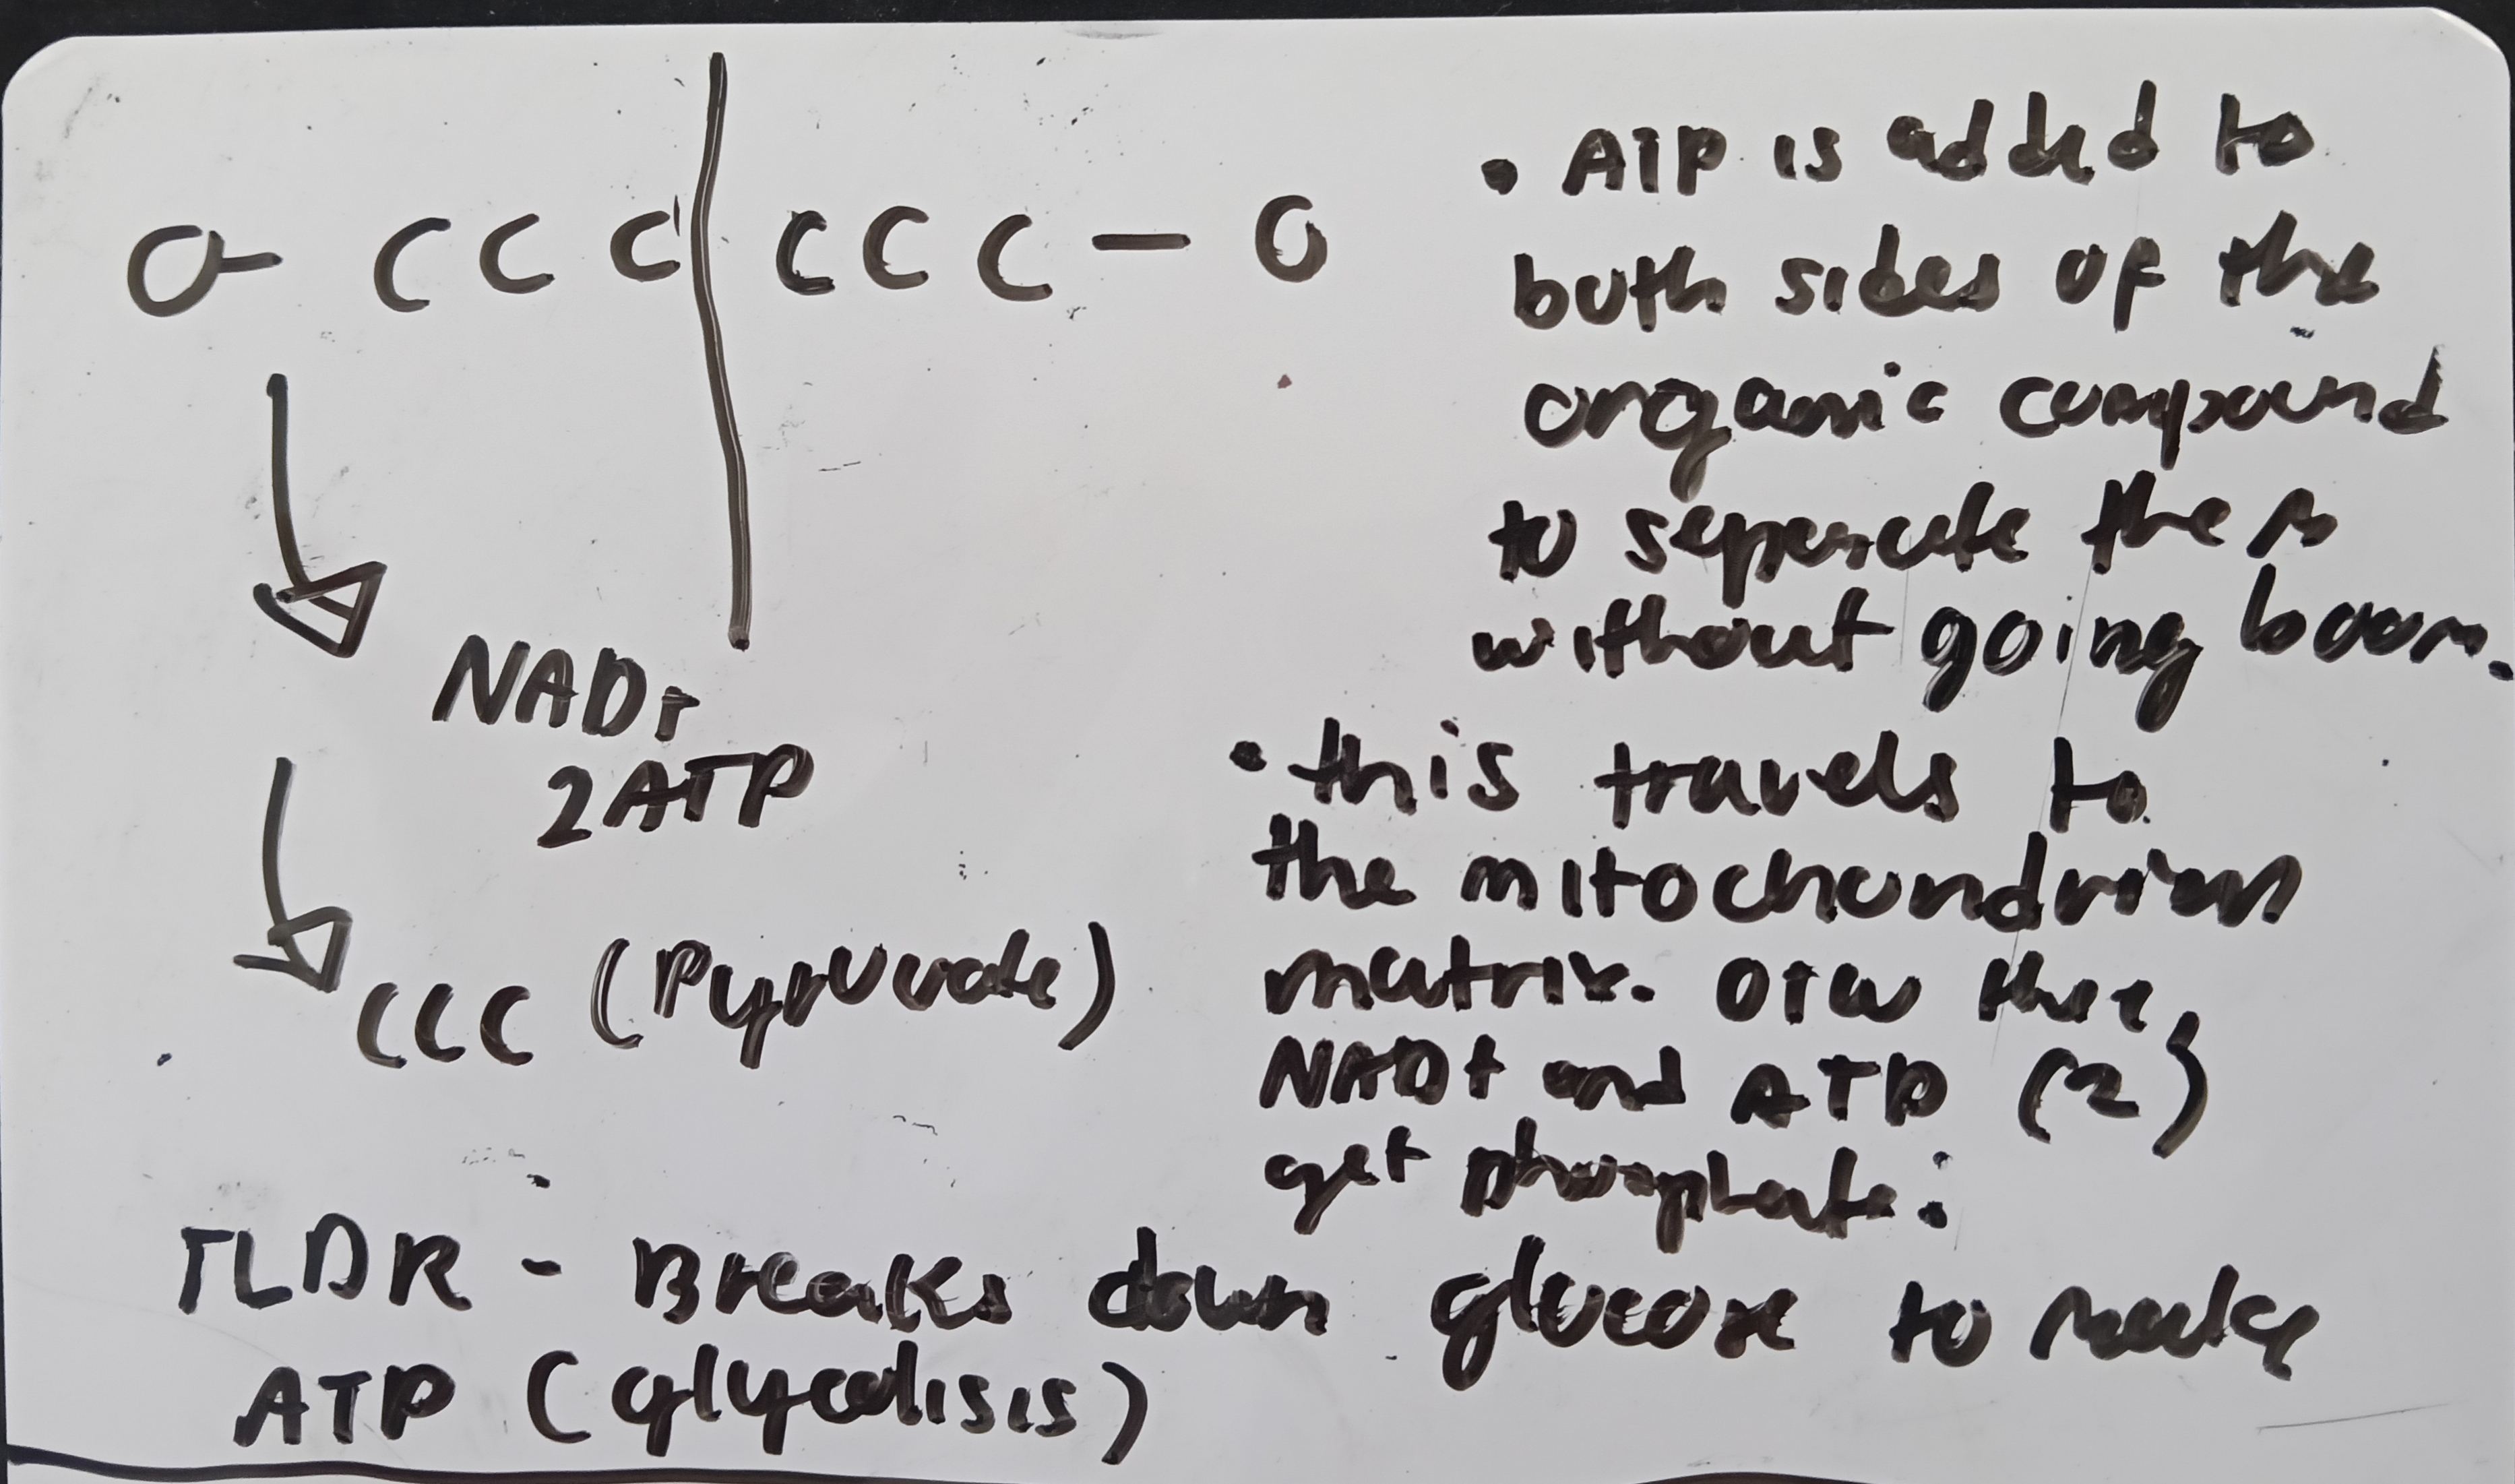 O- CCC CCC - O
NAD+
2ATP
CCC (Pyruvate)
• ATP is added to
both sides of the
organic compound
to seperate them
without going boom.
• this travels to
the mitochondrion
matrix. OTW there,
NAD+ and ATP (2)
get phosphate.
TLDR - Breaks down glucose to make
ATP (glycolisis)